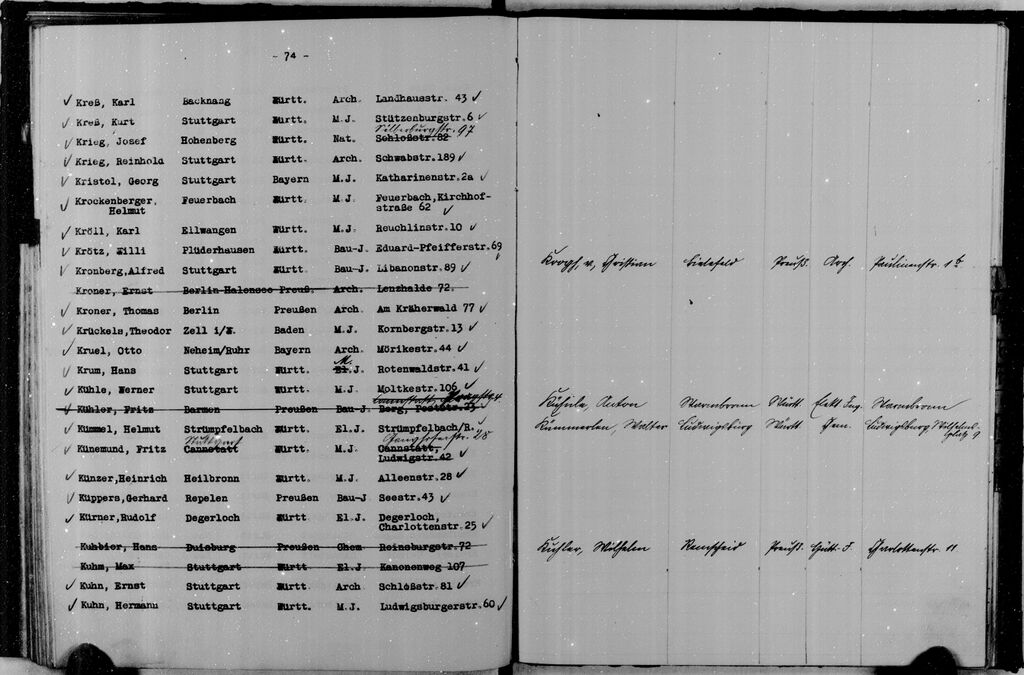 - 74 -
✓ Kreß, Karl Backnang Württ. Arch. Landhausstr. 43 ✓
✓ Kreß, Kurt Stuttgart Württ. M.J. Stützenburgstr. 6 ✓
Silberburgstr. 97
✓ Krieg, Josef Hohenberg Württ. Nat. Schloßstr. 82
✓ Krieg, Reinhold Stuttgart Württ. Arch. Schwabstr. 189 ✓
✓ Kristel, Georg Stuttgart Bayern M.J. Katharinenstr. 2a ✓
✓ Krockenberger, Feuerbach Württ. M.J. Feuerbach, Kirchhof-
Helmut straße 62 ✓
✓ Kröll, Karl Ellwangen Württ. M.J. Reuchlinstr. 10 ✓
✓ Krötz, Willi Plüderhausen Württ. Bau-J. Eduard-Pfeifferstr. 69 ✓
✓ Kronberg, Alfred Stuttgart Württ. Bau-J. Libanonstr. 89 ✓
Kroner, Ernst Berlin-Halensee Preuß. Arch. Lenzhalde 72.
✓ Kroner, Thomas Berlin Preußen Arch. Am Kräherwald 77 ✓
✓ Krückels, Theodor Zell i/W. Baden M.J. Kornbergstr. 13 ✓
✓ Kruel, Otto Neheim/Ruhr Bayern Arch. Mörikestr. 44 ✓
M.
✓ Krum, Hans Stuttgart Württ. El.J. Rotenwaldstr. 41 ✓
✓ Kühle, Werner Stuttgart Württ. M.J. Moltkestr. 106 ✓
Cannstatt,
Kühler, Fritz Barmen Preußen Bau-J. Berg, Poststr. 33
✓ Kümmel, Helmut Strümpfelbach Württ. El.J. Strümpfelbach/R. ✓
Stuttgart Ganghoferstr. 28
✓ Künemund, Fritz Cannstatt Württ. M.J. Cannstatt,
Ludwigstr. 42 ✓
✓ Künzer, Heinrich Heilbronn Württ. M.J. Alleenstr. 28 ✓
✓ Küppers, Gerhard Repelen Preußen Bau-J Seestr. 43 ✓
✓ Kürner, Rudolf Degerloch Württ El.J. Degerloch,
Charlottenstr. 25 ✓
Kuhbier, Hans Duisburg Preußen Chem Reinsburgstr. 72
Kuhm, Max Stuttgart Württ El.J Kanonenweg 107
✓ Kuhn, Ernst Stuttgart Württ. Arch Schloßstr. 81 ✓
✓ Kuhn, Hermann Stuttgart Württ. M.J. Ludwigsburgerstr. 60 ✓
Kroph, v., Christian Bielefeld Preuß. Arch. Paulinenstr. 1b
Anton Warmbronn Württ. Elekt. Ing. Warmbronn
Kümmerlen, Walter Ludwigsburg Württ Gem. Ludwigsburg Wilhelms-
platz 9
Kuhler, Wilhelm Remscheid Preuß. Hütt. J. Charlottenstr. 11